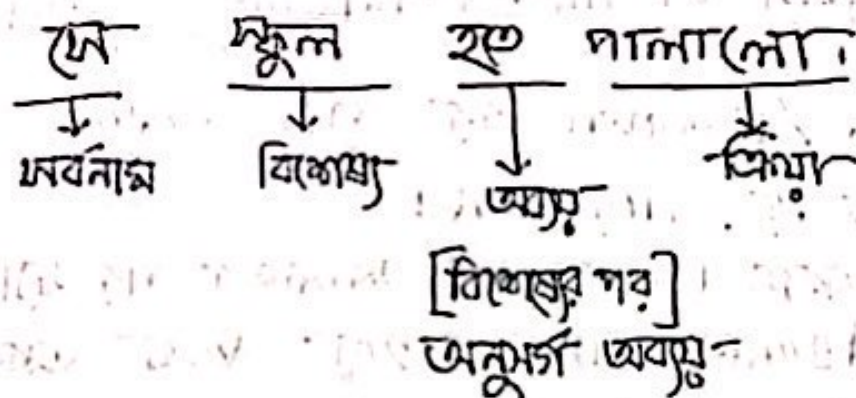 সে স্কুল হতে পালালো।
সর্বনাম বিশেষ্য অব্যয় ক্রিয়া
[বিশেষ্যের পর]
অনুসর্গ অব্যয়